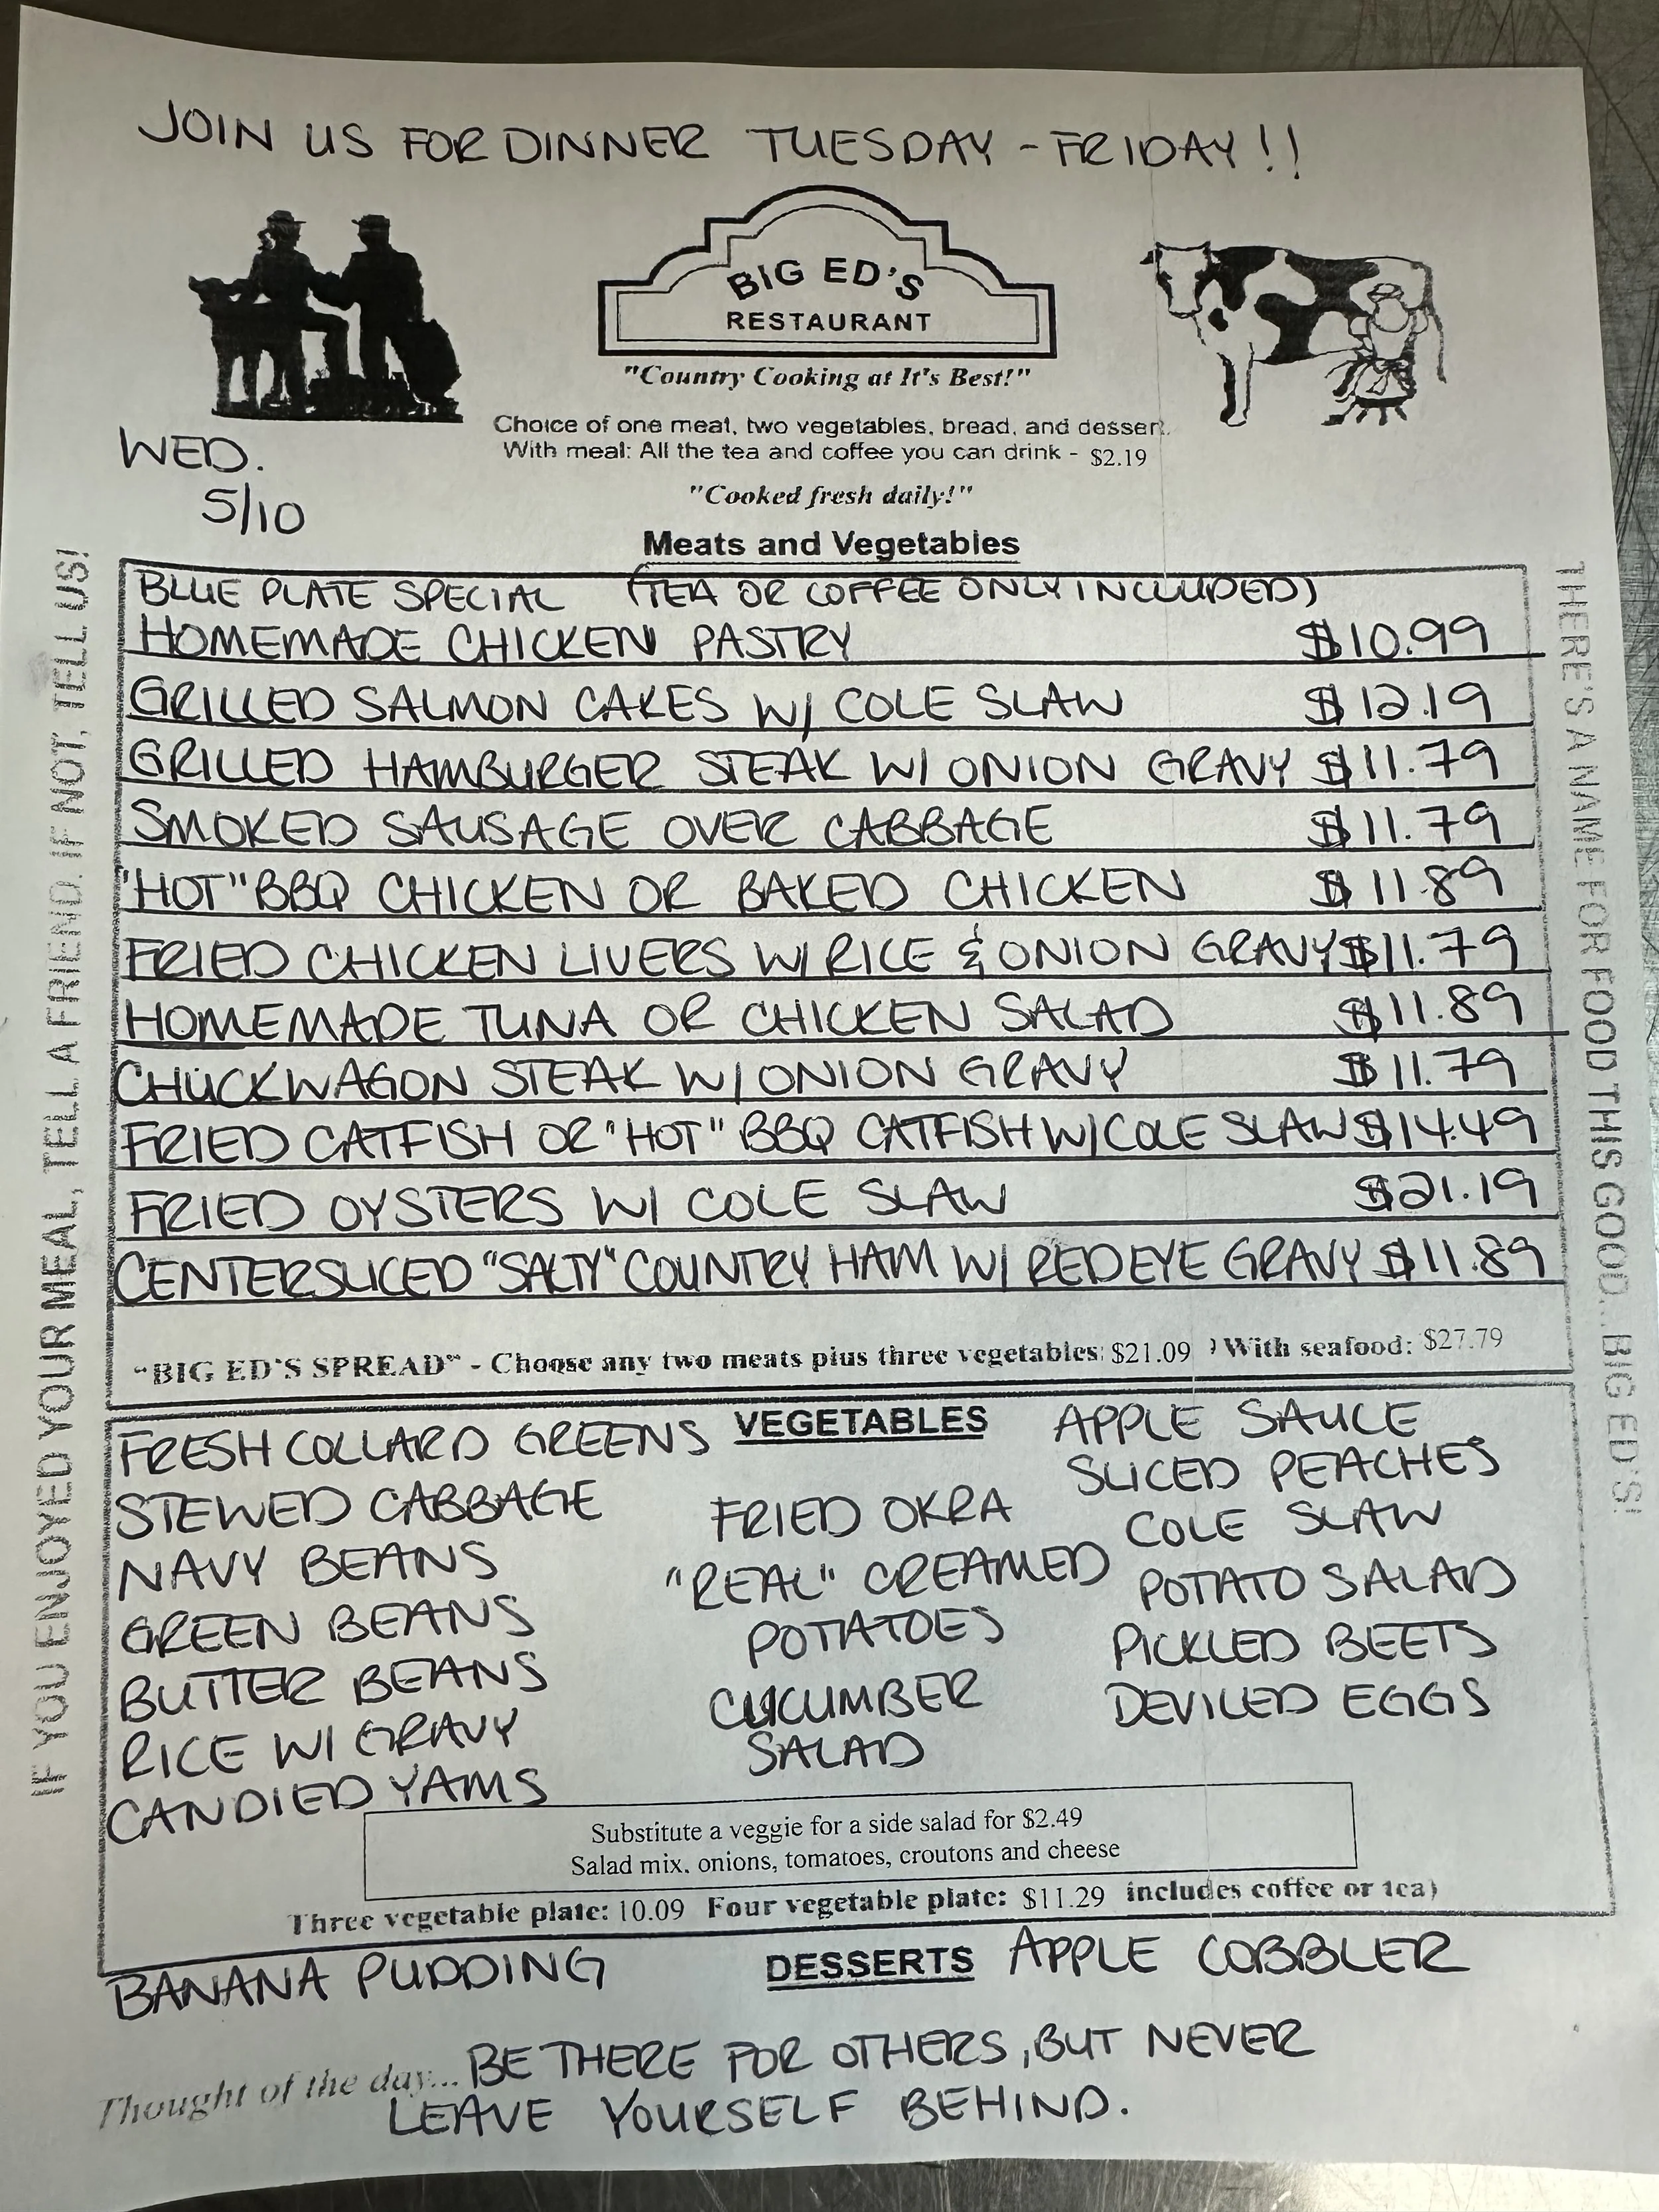 JOIN US FOR DINNER TUESDAY - FRIDAY!!
BIG ED'S
RESTAURANT
"Country Cooking at It's Best!"
Choice of one meat, two vegetables, bread, and dessert.
With meal: All the tea and coffee you can drink - $2.19
WED.
5/10
"Cooked fresh daily!"
Meats and Vegetables
BLUE PLATE SPECIAL (TEA OR COFFEE ONLY INCLUDED)
HOMEMADE CHICKEN PASTRY $10.99
GRILLED SALMON CAKES W/ COLE SLAW $12.19
GRILLED HAMBURGER STEAK W/ ONION GRAVY $11.79
SMOKED SAUSAGE OVER CABBAGE $11.79
"HOT" BBQ CHICKEN OR BAKED CHICKEN $11.89
FRIED CHICKEN LIVERS W/ RICE & ONION GRAVY $11.79
HOMEMADE TUNA OR CHICKEN SALAD $11.89
CHUCKWAGON STEAK W/ ONION GRAVY $11.79
FRIED CATFISH OR "HOT" BBQ CATFISH W/ COLE SLAW $14.49
FRIED OYSTERS W/ COLE SLAW $21.19
CENTERSLICED "SALTY" COUNTRY HAM W/ REDEYE GRAVY $11.89
"BIG ED'S SPREAD" - Choose any two meats plus three vegetables: $21.09 ) With seafood: $27.79
IF YOU ENJOYED YOUR MEAL, TELL A FRIEND. IF NOT, TELL US!
THERE'S A NAME FOR FOOD THIS GOOD... BIG ED'S!
VEGETABLES
FRESH COLLARD GREENS
STEWED CABBAGE
NAVY BEANS
GREEN BEANS
BUTTER BEANS
RICE W/ GRAVY
CANDIED YAMS
FRIED OKRA
"REAL" CREAMED
POTATOES
CUCUMBER
SALAD
APPLE SAUCE
SLICED PEACHES
COLE SLAW
POTATO SALAD
PICKLED BEETS
DEVILED EGGS
Substitute a veggie for a side salad for $2.49
Salad mix, onions, tomatoes, croutons and cheese
Three vegetable plate: 10.09 Four vegetable plate: $11.29 includes coffee or tea)
BANANA PUDDING DESSERTS APPLE COBBLER
Thought of the day... BE THERE FOR OTHERS, BUT NEVER
LEAVE YOURSELF BEHIND.